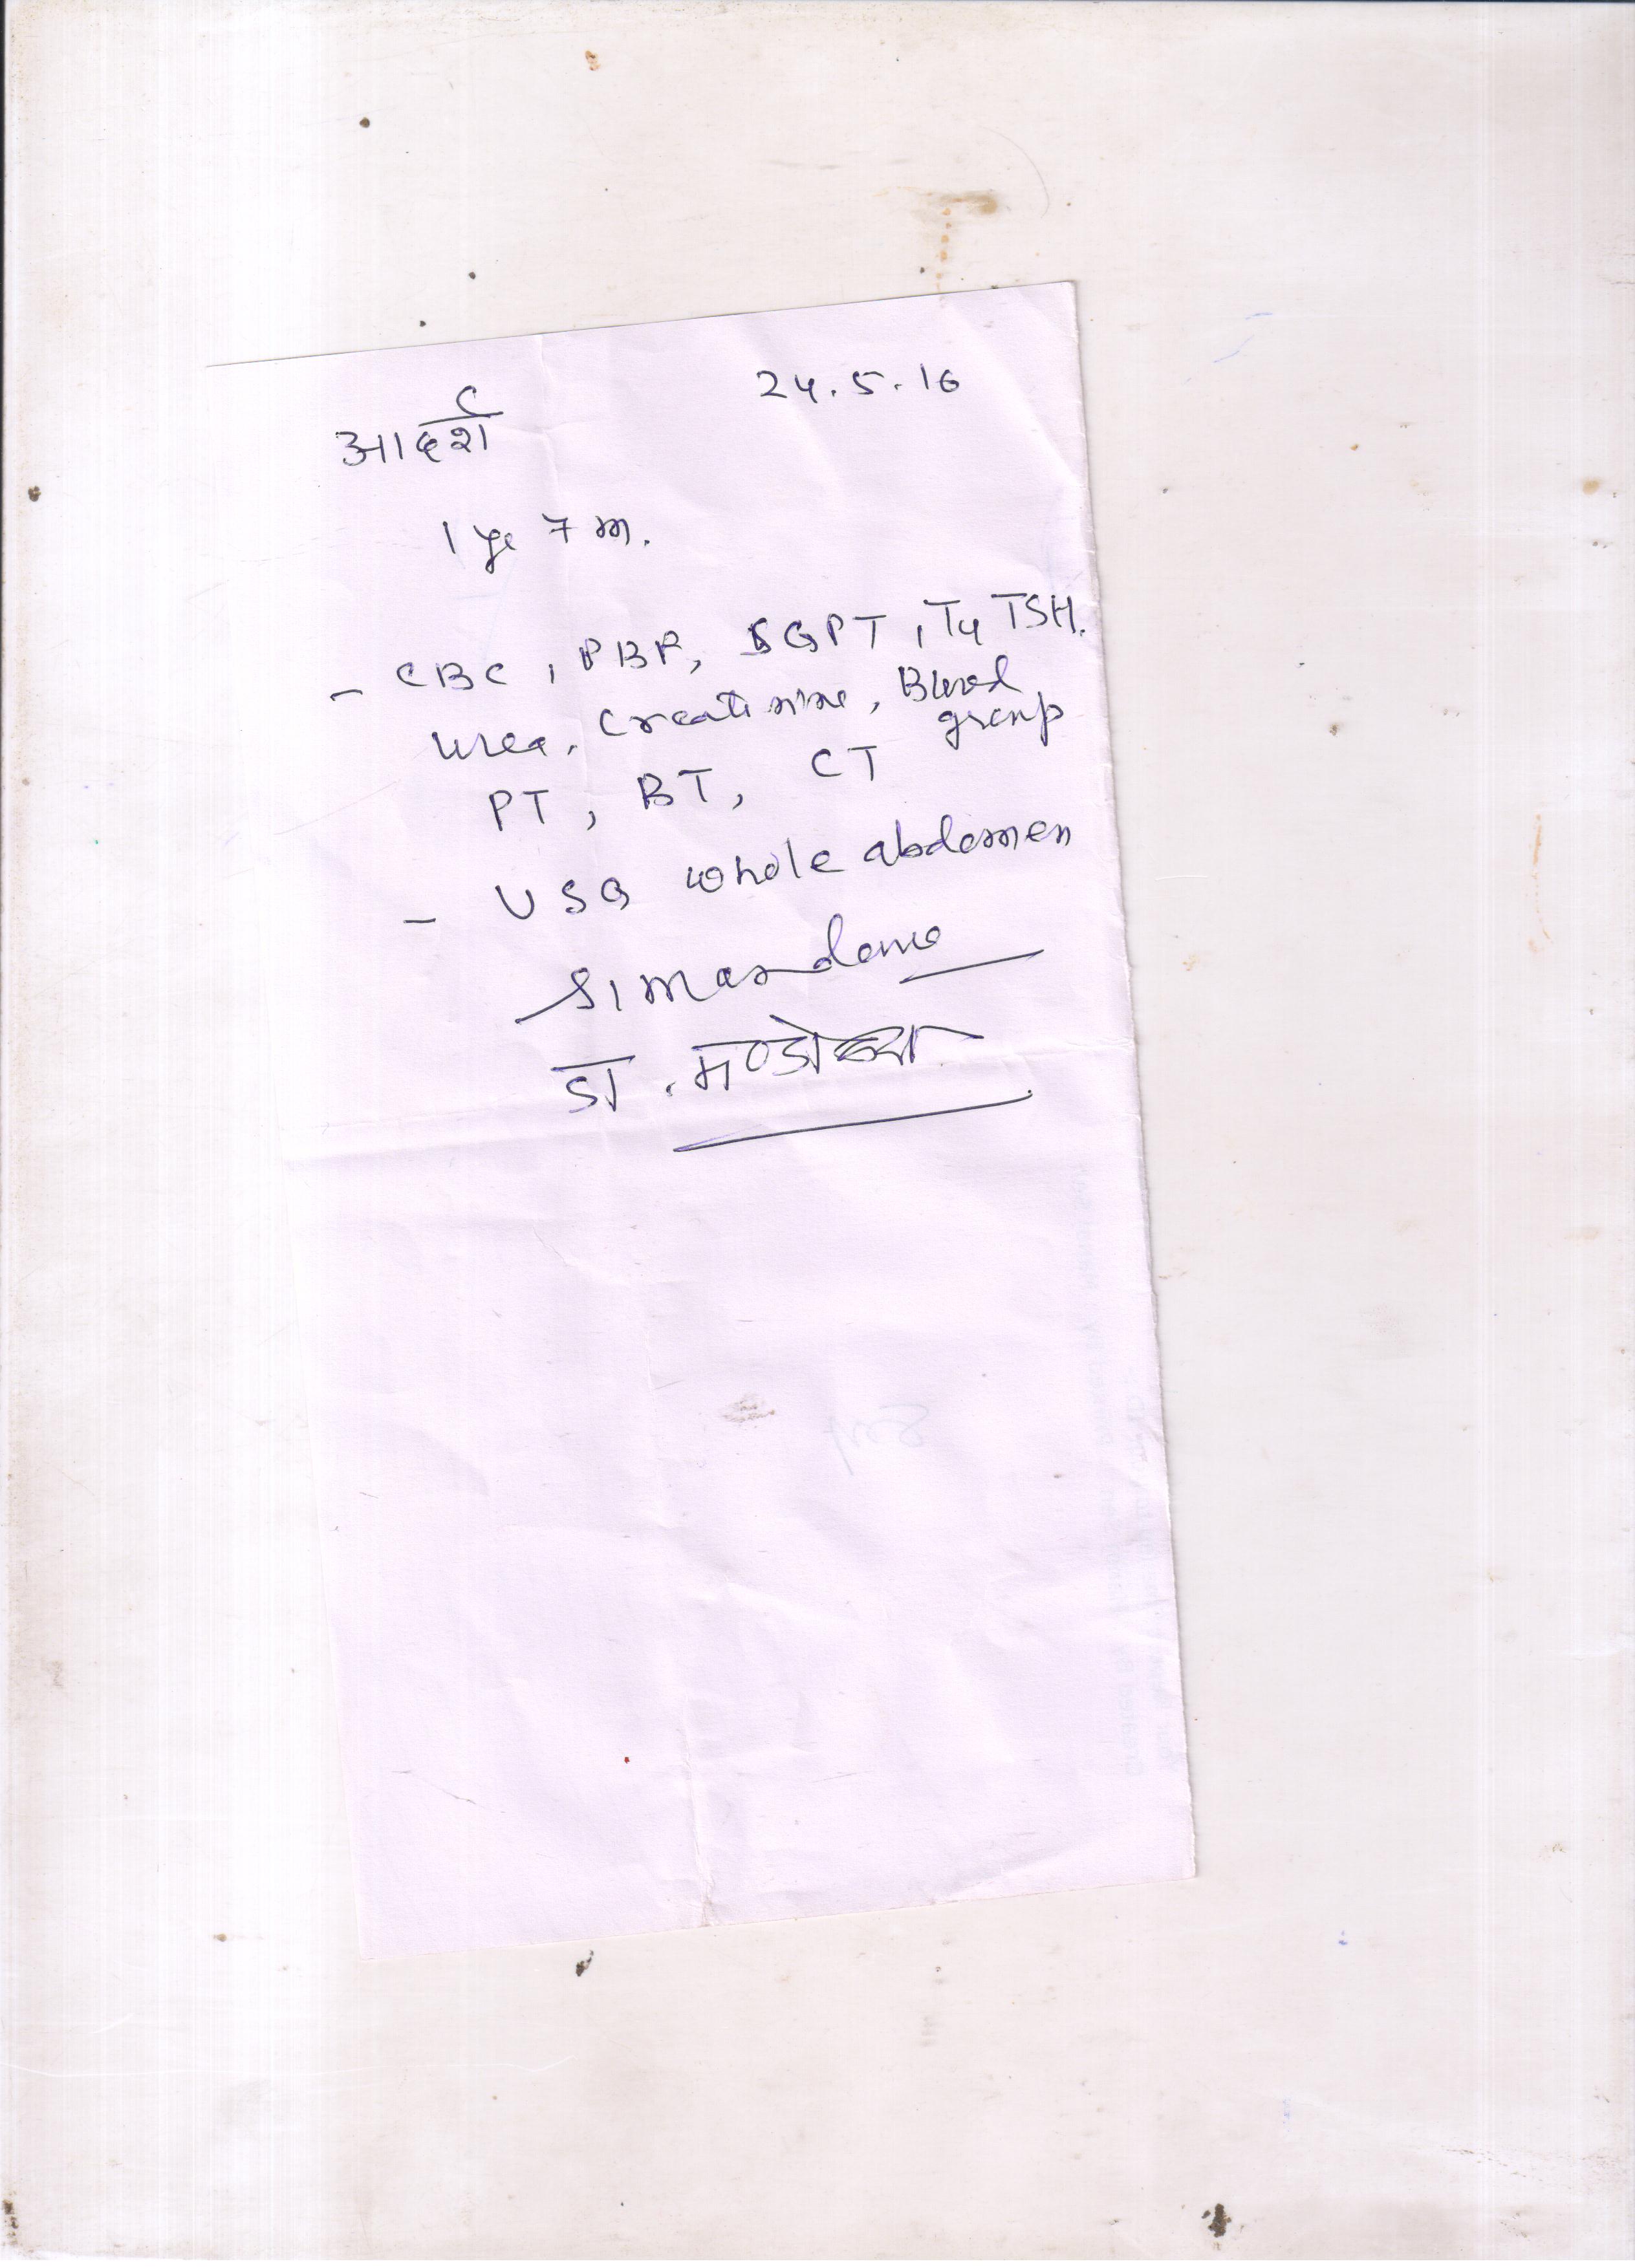 24.5.16
आदर्श
1 yr 7 m.
- CBC, PBF, SGPT, T4 TSH.
Urea, Creatinine, Blood group
PT, BT, CT
- USG whole abdomen
डा.